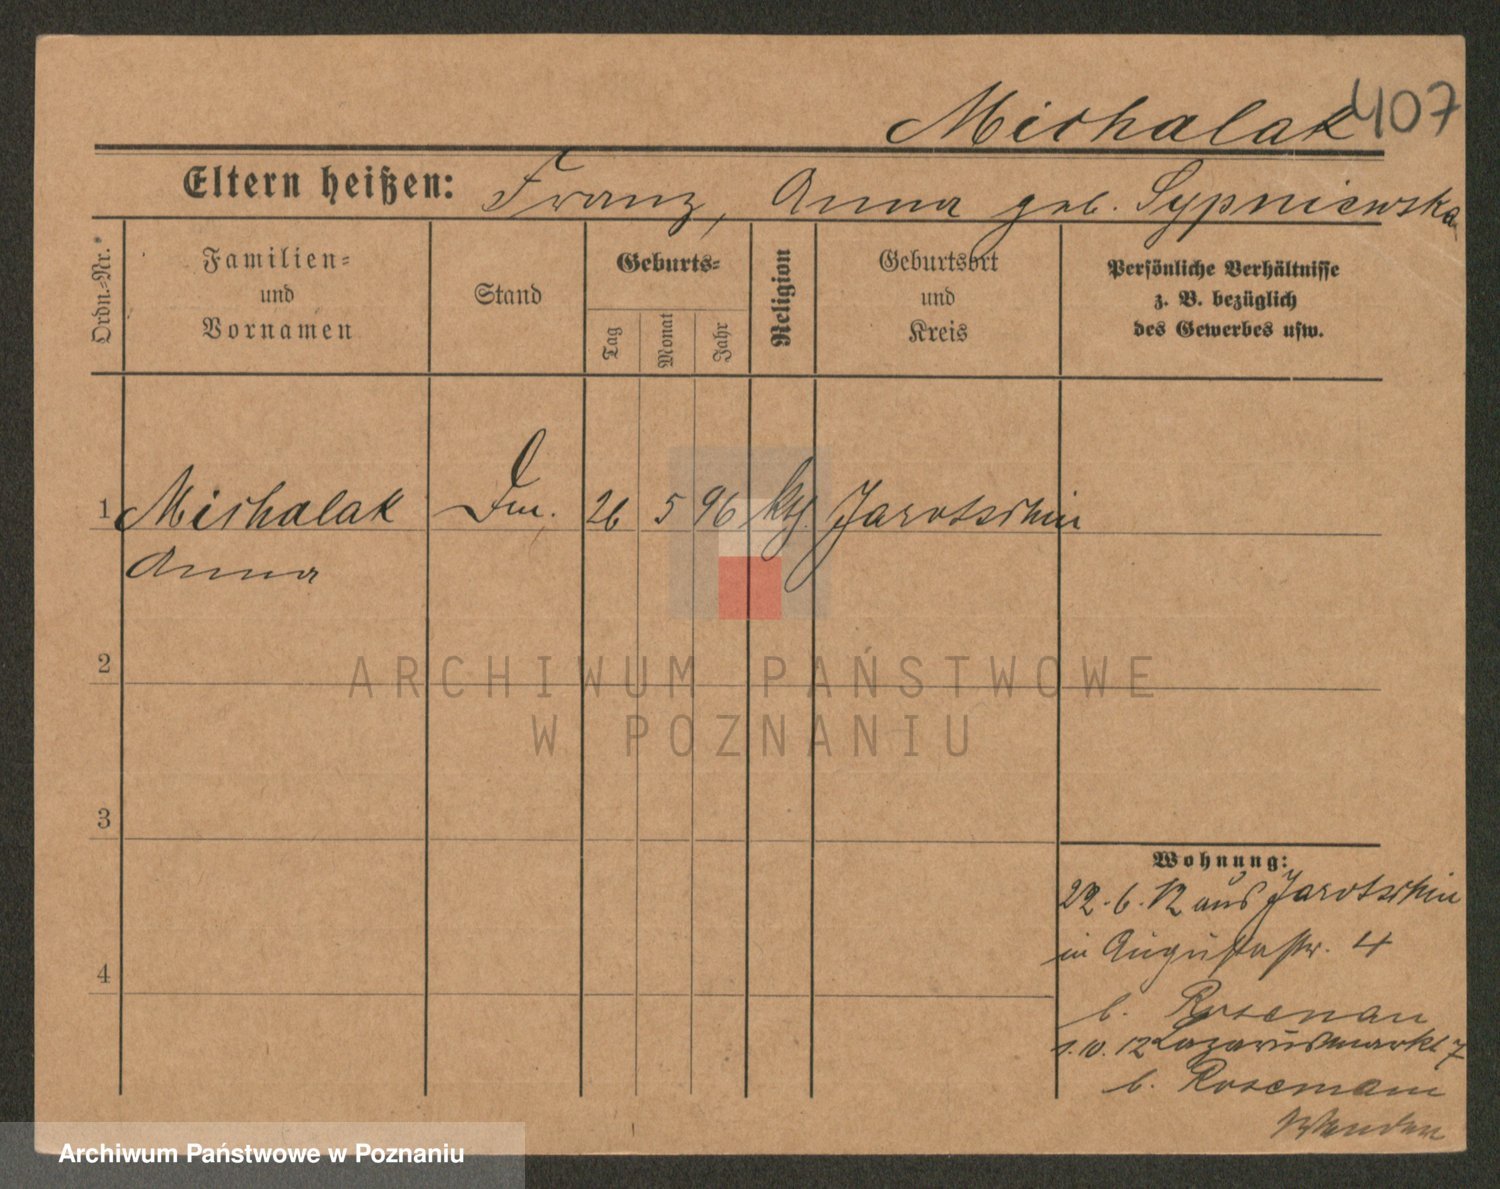 Michalak 407
Eltern heißen: Franz, Anna geb. Sypniewska
Ordn.-Nr.
Familien-
und
Vornamen
Stand
Geburts-
Tag
Monat
Jahr
Religion
Geburtsort
und
Kreis
Persönliche Verhältnisse
z. B. bezüglich
des Gewerbes usw.
1 Michalak Dm. 26 5 96 kth. Jarotschin
Anna
2
3
4
Wohnung:
22.6.12 aus Jarotschin
in Augustastr. 4
b. Rosenau
1.10.12 Lazarusmarkt 7
b. Rosemann
ARCHIWUM PAŃSTWOWE
W POZNANIU
Archiwum Państwowe w Poznaniu